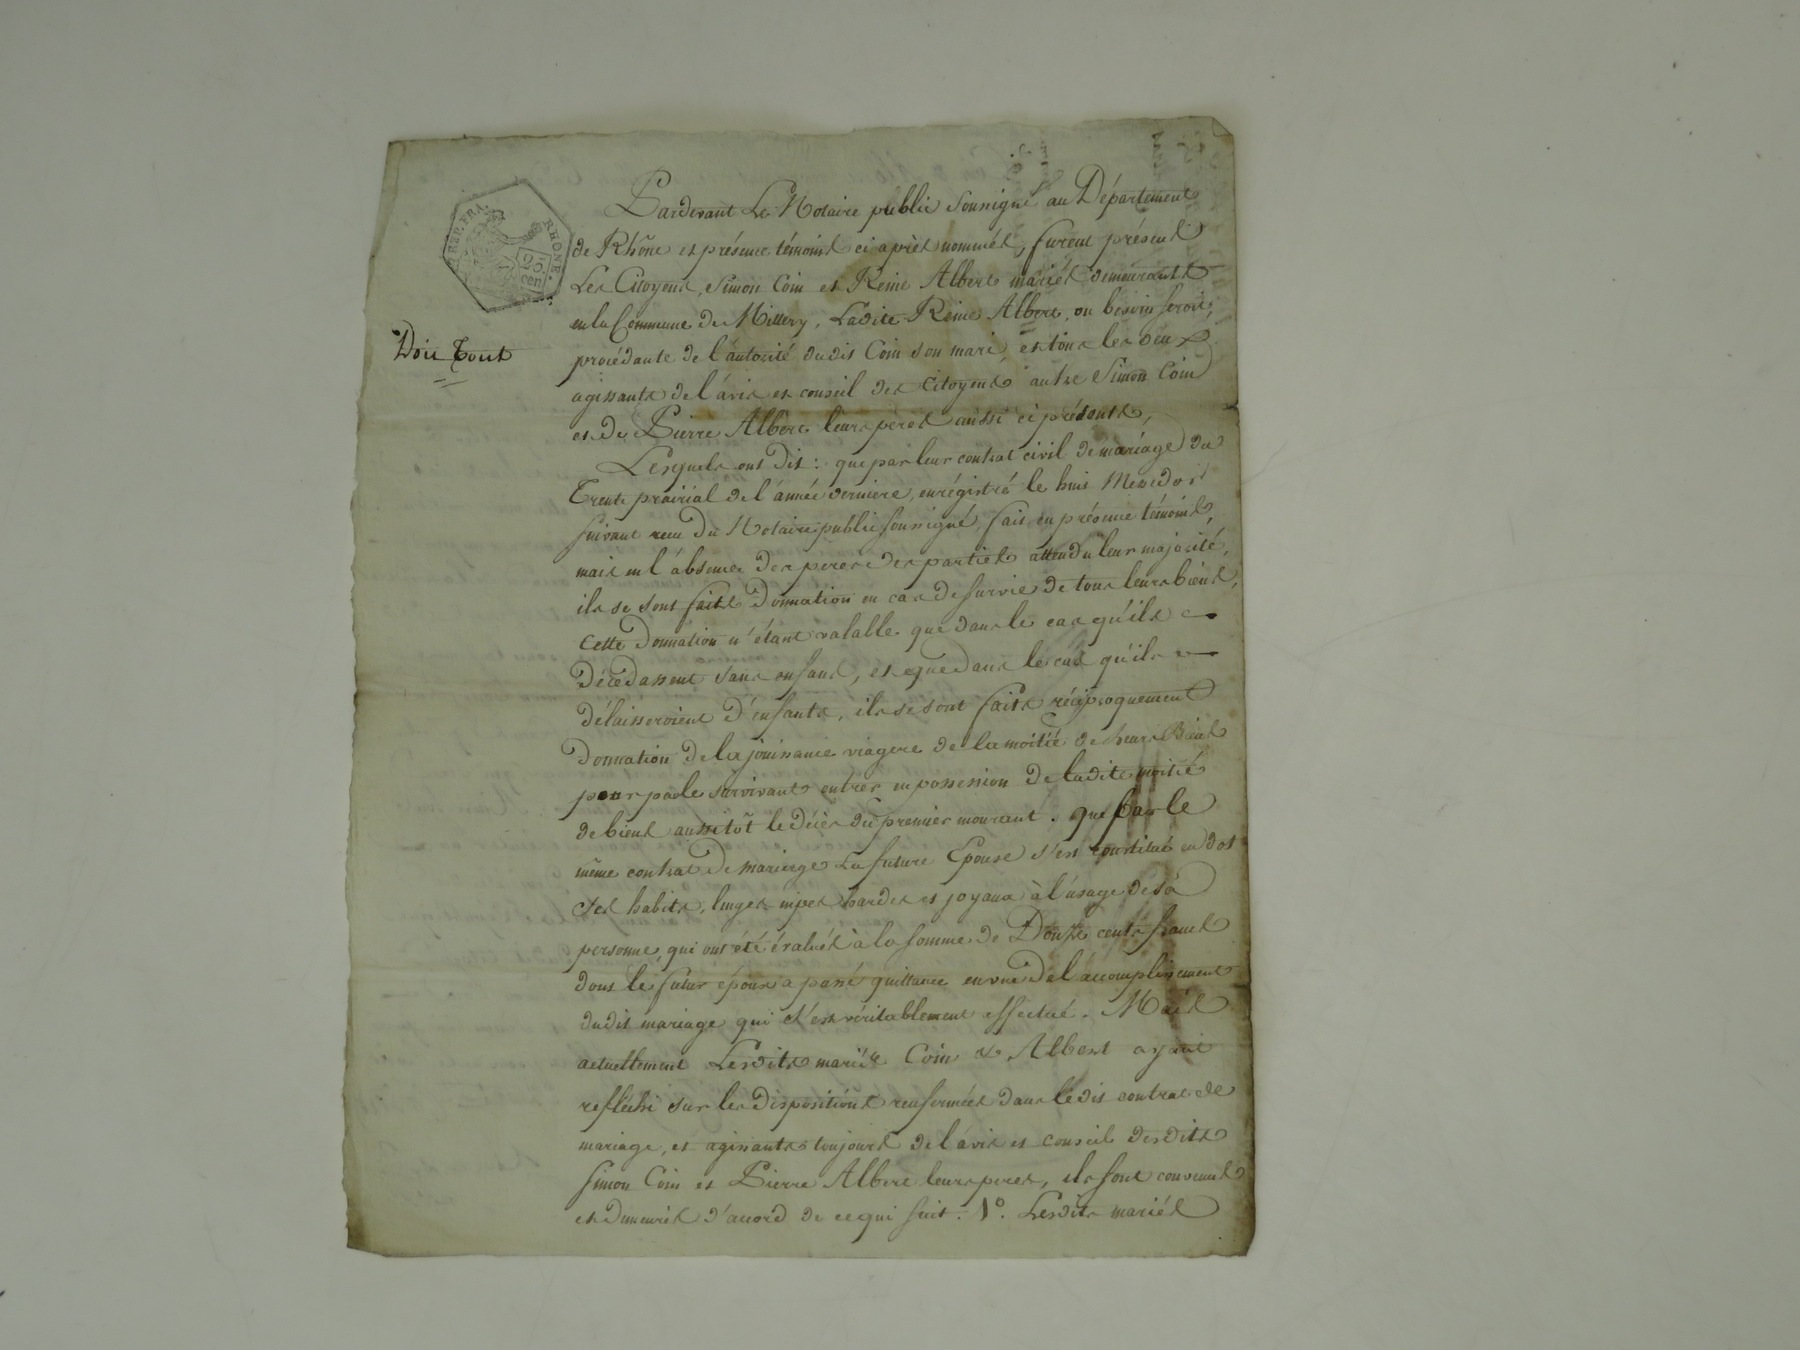 REP. FRA.
RHONE.
25
cen
Doit Tout
Pardevant Le Notaire public soussigné au Département
de Rhône et présence témoins ci après nommés, furent présents
Les Citoyens, Simon Coin et Reine Albert mariés demeurants
en la Commune de Millery, Ladite Reine Albert, ou besoin seroit,
procédante de l'autorité dudit Coin son mari, et tous les deux
agissants de l'avis et conseil des Citoyens autre Simon Coin
et de Pierre Albert leurs peres aussi ci présents,
Lesquels ont Dit : que par leur contrat civil de mariage du
Trente prairial de l'année derniere, enrégistré le huit Messidor
suivant recu Du Notaire public soussigné, fait en présence témoins,
mais en l'absence des peres des parties attendu leur majorité,
ils se sont faits Donnation en cas de survie de tous leurs biens,
Cette Donnation n'étant valable que dans le cas qu'ils
Décédassent sans enfans, et que dans le cas qu'ils
délaisseroient d'enfants, ils se sont faits réciproquement
Donnation de la jouissance viagere de la moitié de leurs Biens
pour par le survivant entrer en possession de ladite moitié
de biens aussitôt le décès du premier mourant. que par le
même contrat de mariage La future Epouse s'est constitué en dot
ses habits, linges nipes hardes et joyaux à l'usage de sa
personne, qui ont été évalués à la somme de Douze cents francs
dont le futur époux a passé quittance en vue de l'accomplissement
dudit mariage qui s'est véritablement effectué. Mais
actuellement Lesdits mariés Coin & Albert ayant
refléchi sur les dispositions renfermées dans le dit contrat de
mariage, et agissants toujours de l'avis et conseil desdits
Simon Coin et Pierre Albert leurs peres, ils sont convenus
et demeurés d'accord de ce qui suit. 1°. Lesdits mariés